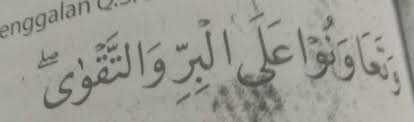 enggalan Q.S.
وَتَعَاوَنُوْا عَلَى الْبِرِّ وَالتَّقْوٰىۖ